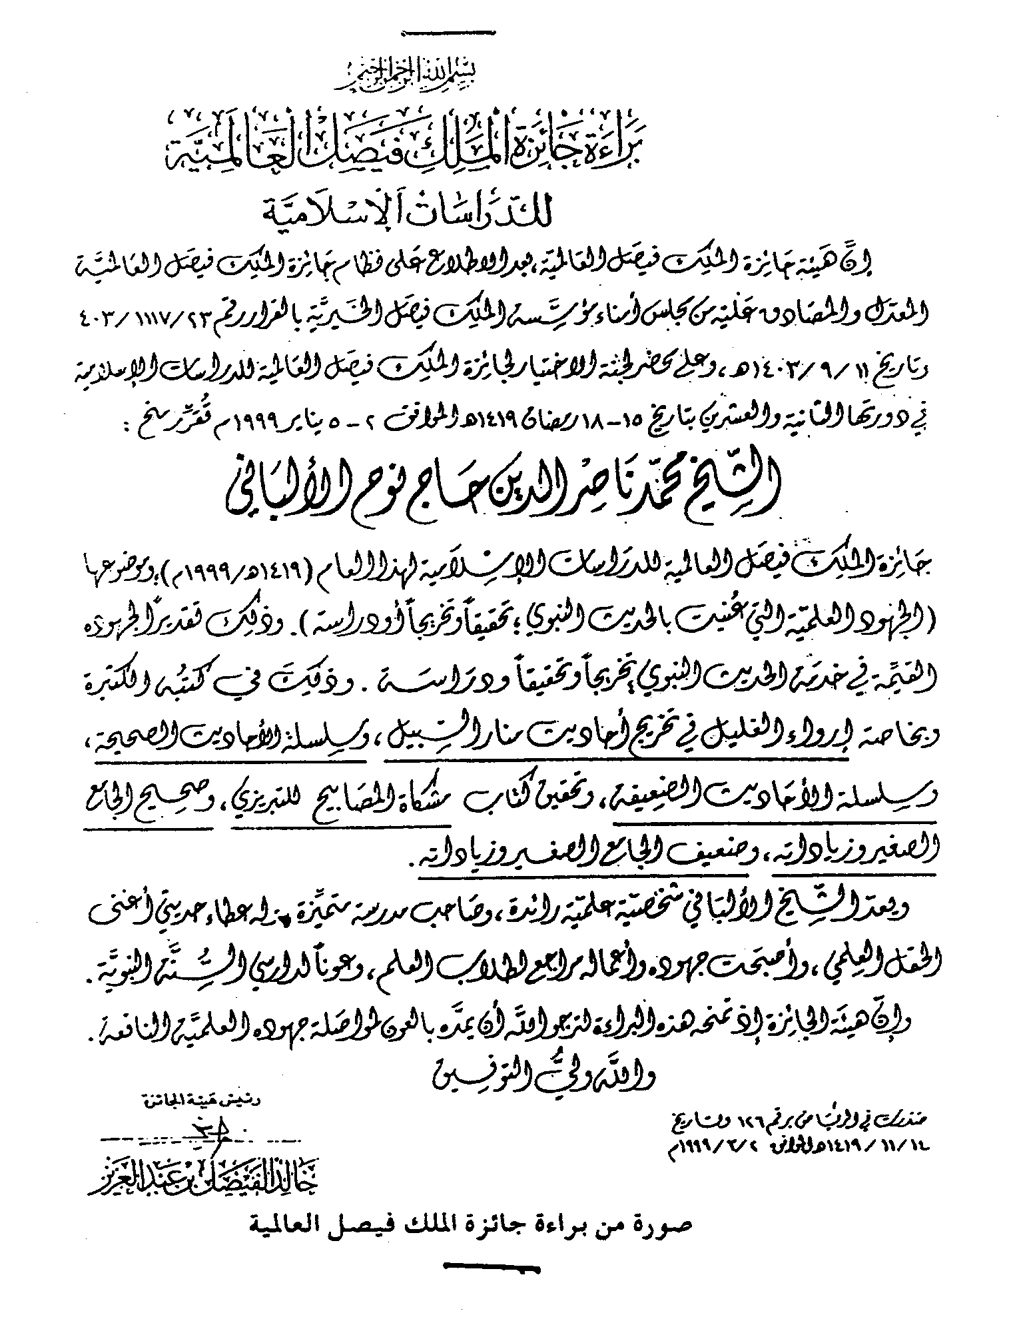 بسم الله الرحمن الرحيم
براءة جائزة الملك فيصل العالمية
للدراسات الإسلامية
إنَّ هيئة جائزة الملك فيصل العالمية، بعد الاطلاع على نظام جائزة الملك فيصل العالميَّة
المعدل والمصادق عليه من مجلس أمناء مؤسَّسة الملك فيصل الخيريَّة بالقرار رقم ٤٠٣/١١١٧/٢٣
وتاريخ ١٤٠٣/٩/١١هـ، وعلى محضر لجنة الاختيار لجائزة الملك فيصل العالمية للدراسات الإسلامية
في دورتها الثانية والعشرين بتاريخ ١٥-١٨ رمضان ١٤١٩هـ الموافق ٢-٥ يناير ١٩٩٩م تُقرِّر منح :
الشَّيخ محمَّد نَاصِر الدين حَاج نوح الألبَاني
جَائِزة الملك فيصَل العالمية للدرَاسات الإسْلَامية لهذا العام (١٤١٩هـ/١٩٩٩م)؛ وموضوعها
(الجهود العلميَّة التي عُنيت بالحديث النبوي؛ تحقيقاً وتخريجاً أو دراسة). وذلك تقديراً لجهوده
القيِّمة في خدمة الحديث النبوي؛ تخريجاً وتحقيقاً ودرَاسة. وذلك في كتبه الكثيرة
وبخاصة إرواء الغليل في تخريج أحاديث منار السَّبيل، وسِلسلة الأحاديث الصحيحة،
وسلسلة الأحَاديث الضعيفة، وتحقيق كتاب مشكاة المصَابيح للتبريزي، وصحيح الجامع
الصغير وزياداته، وضعيف الجامع الصغير وزياداته.
ويعد الشَّيخ الألبَاني شخصيَّة علميَّة رائدة، وصَاحب مدرسة متميِّزة. له عطاء حديثي أغنى
الحقل العِلمي، وأصبَحت جهوده وأعماله مراجع لطلاب العلم، وعوناً لدارسي السُّنَّة النبويَّة.
وإنَّ هيئة الجائزة إذ تمنحه هذه البراءة لترجو الله أن يمدَّه بالعون لمواصلة جهوده العلميَّة النافعة.
والله وليُّ التوفيق
رئيس هيئة الجائزة
صدرت في الرياض برقم ١٢٦ وبتاريخ
١٤١٩/١١/١٤هـ الموافق ١٩٩٩/٣/٢م
خالد الفيصل بن عبد العزيز
صورة من براءة جائزة الملك فيصل العالمية